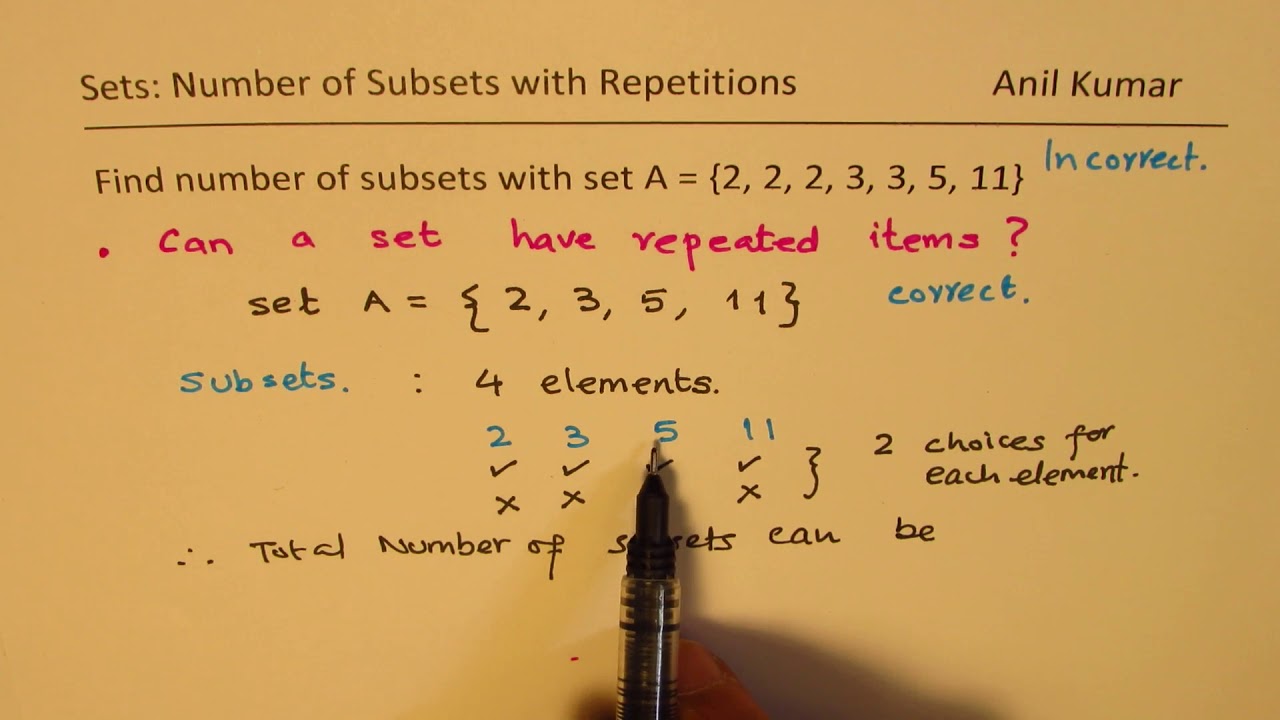 Sets: Number of Subsets with Repetitions Anil Kumar
Find number of subsets with set A = {2, 2, 2, 3, 3, 5, 11} Incorrect.
• Can a set have repeated items ?
set A = { 2, 3, 5, 11 } correct.
Subsets. : 4 elements.
2 3 5 11
✓ ✓ ✓ ✓ } 2 choices for
× × × each element.
∴ Total Number of can be